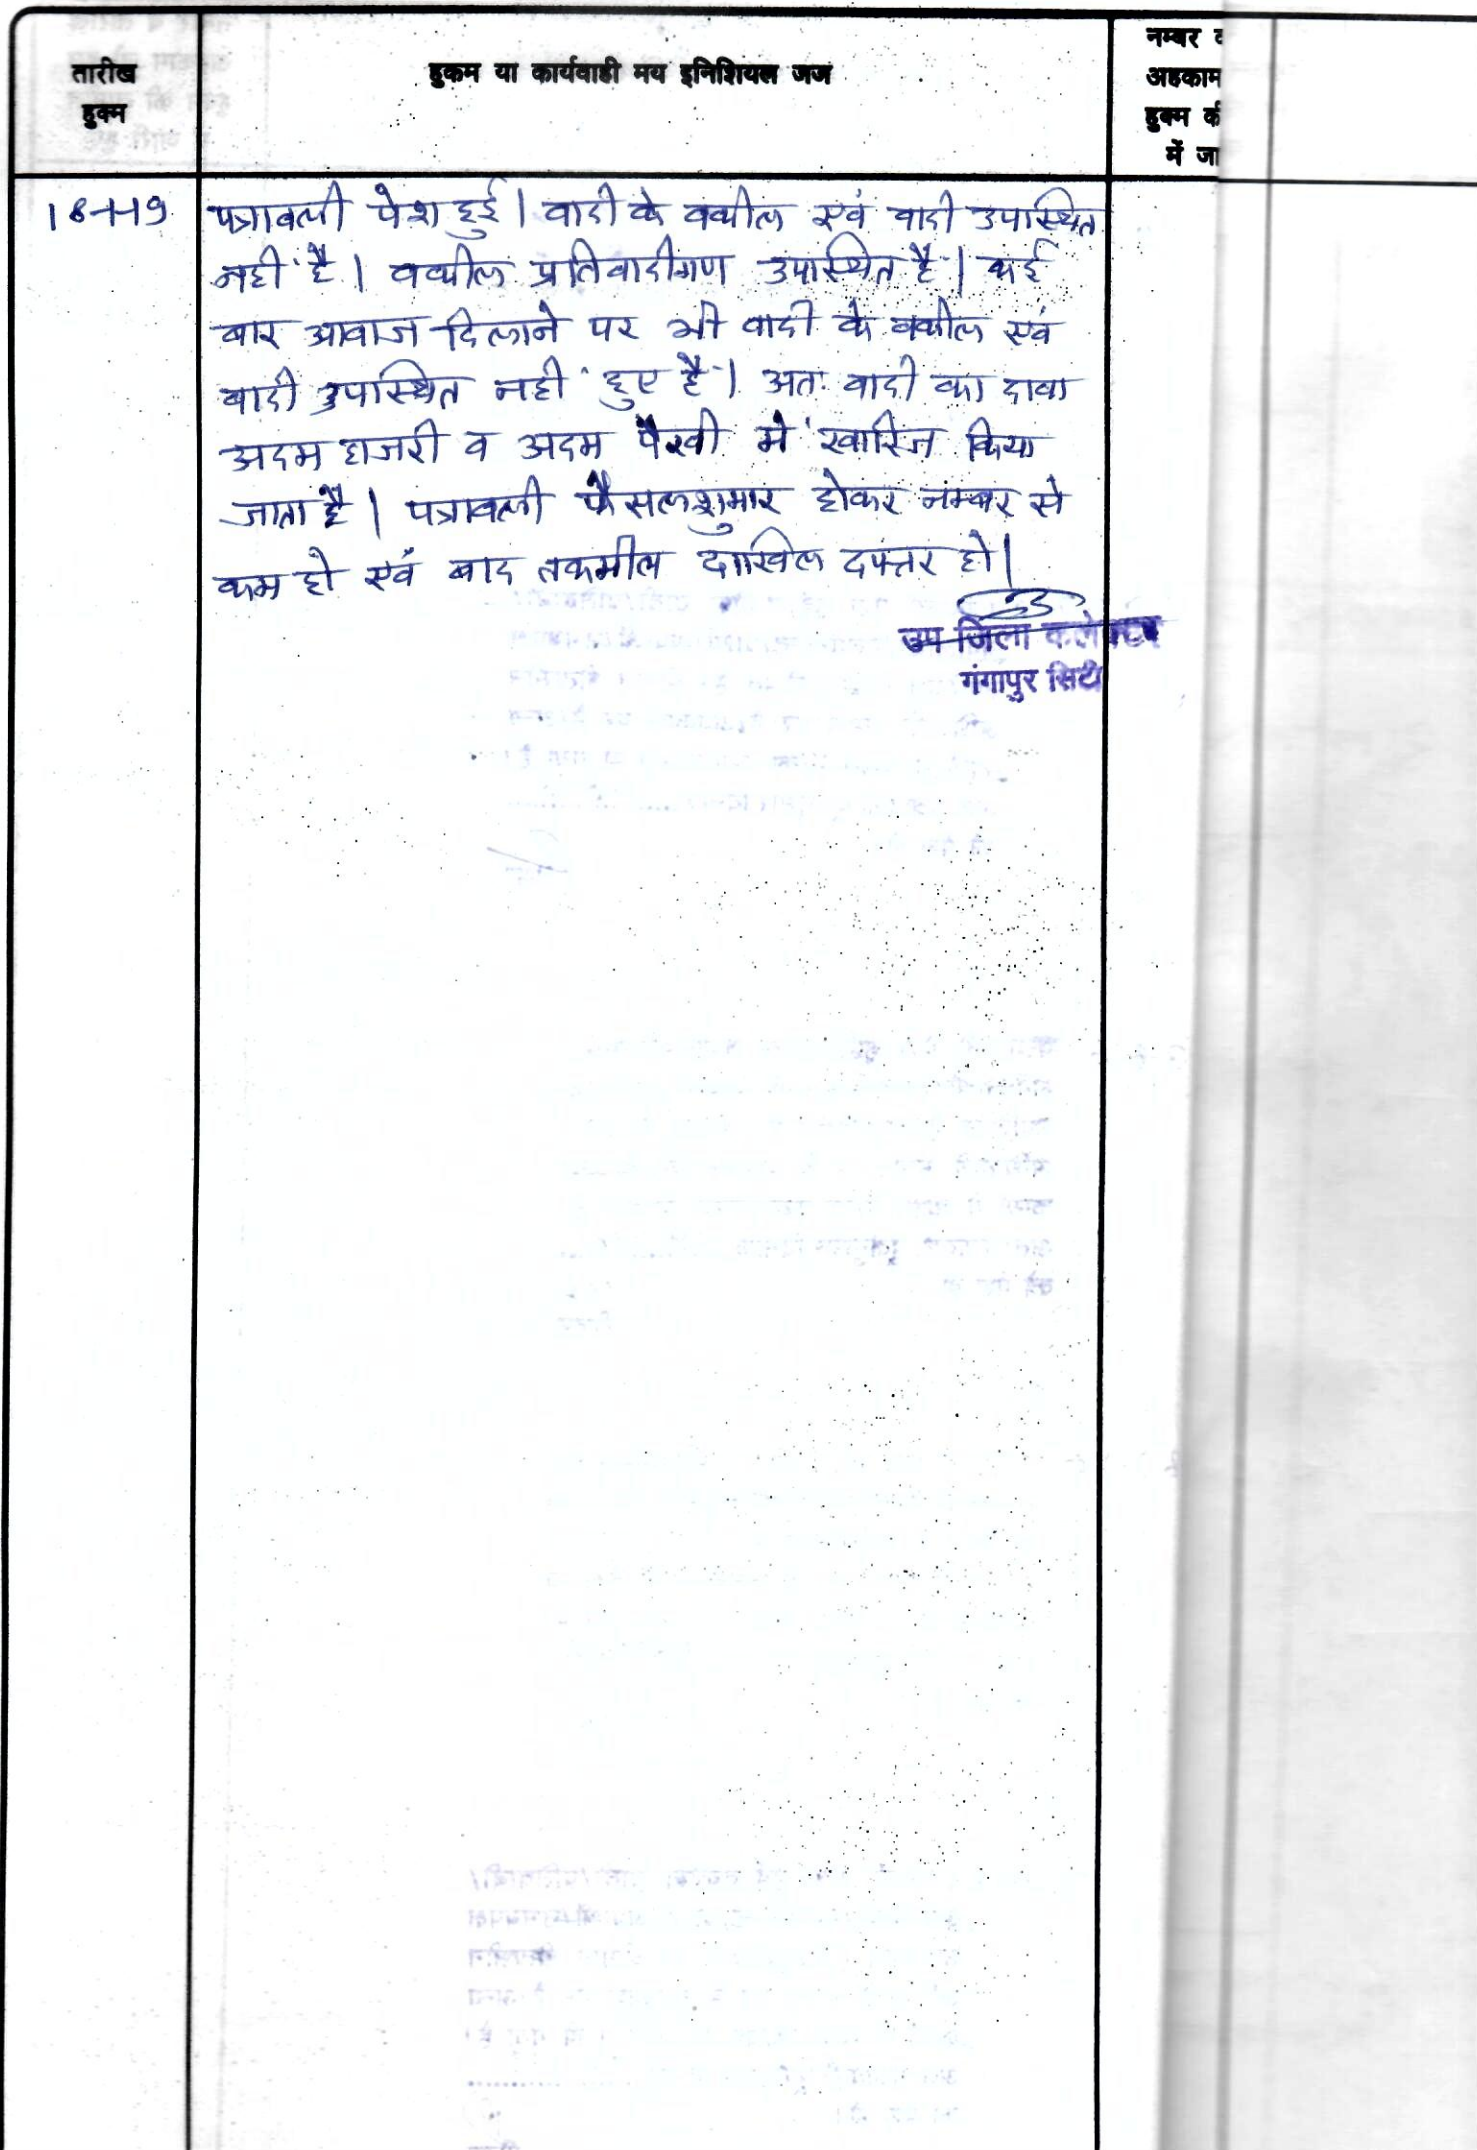 तारीख
हुक्म
हुकम या कार्यवाही मय इनिशियल जज
नम्बर
अहकाम
हुक्म की
में जा
18-1-19
पत्रावली पेश हुई। वादी के वकील एवं वादी उपास्थित
नही है। वकील प्रतिवादीगण उपास्थित है। कई
बार आवाज दिलाने पर भी वादी के वकील एवं
वादी उपास्थित नही हुए है। अतः वादी का दावा
अदम हाजरी व अदम पैरवी मे खारिज किया
जाता है। पत्रावली फैसलशुमार होकर नम्बर से
कम हो एवं बाद तकमील दाखिल दफ्तर हो।
उप जिला कलेक्टर
गंगापुर सिटी